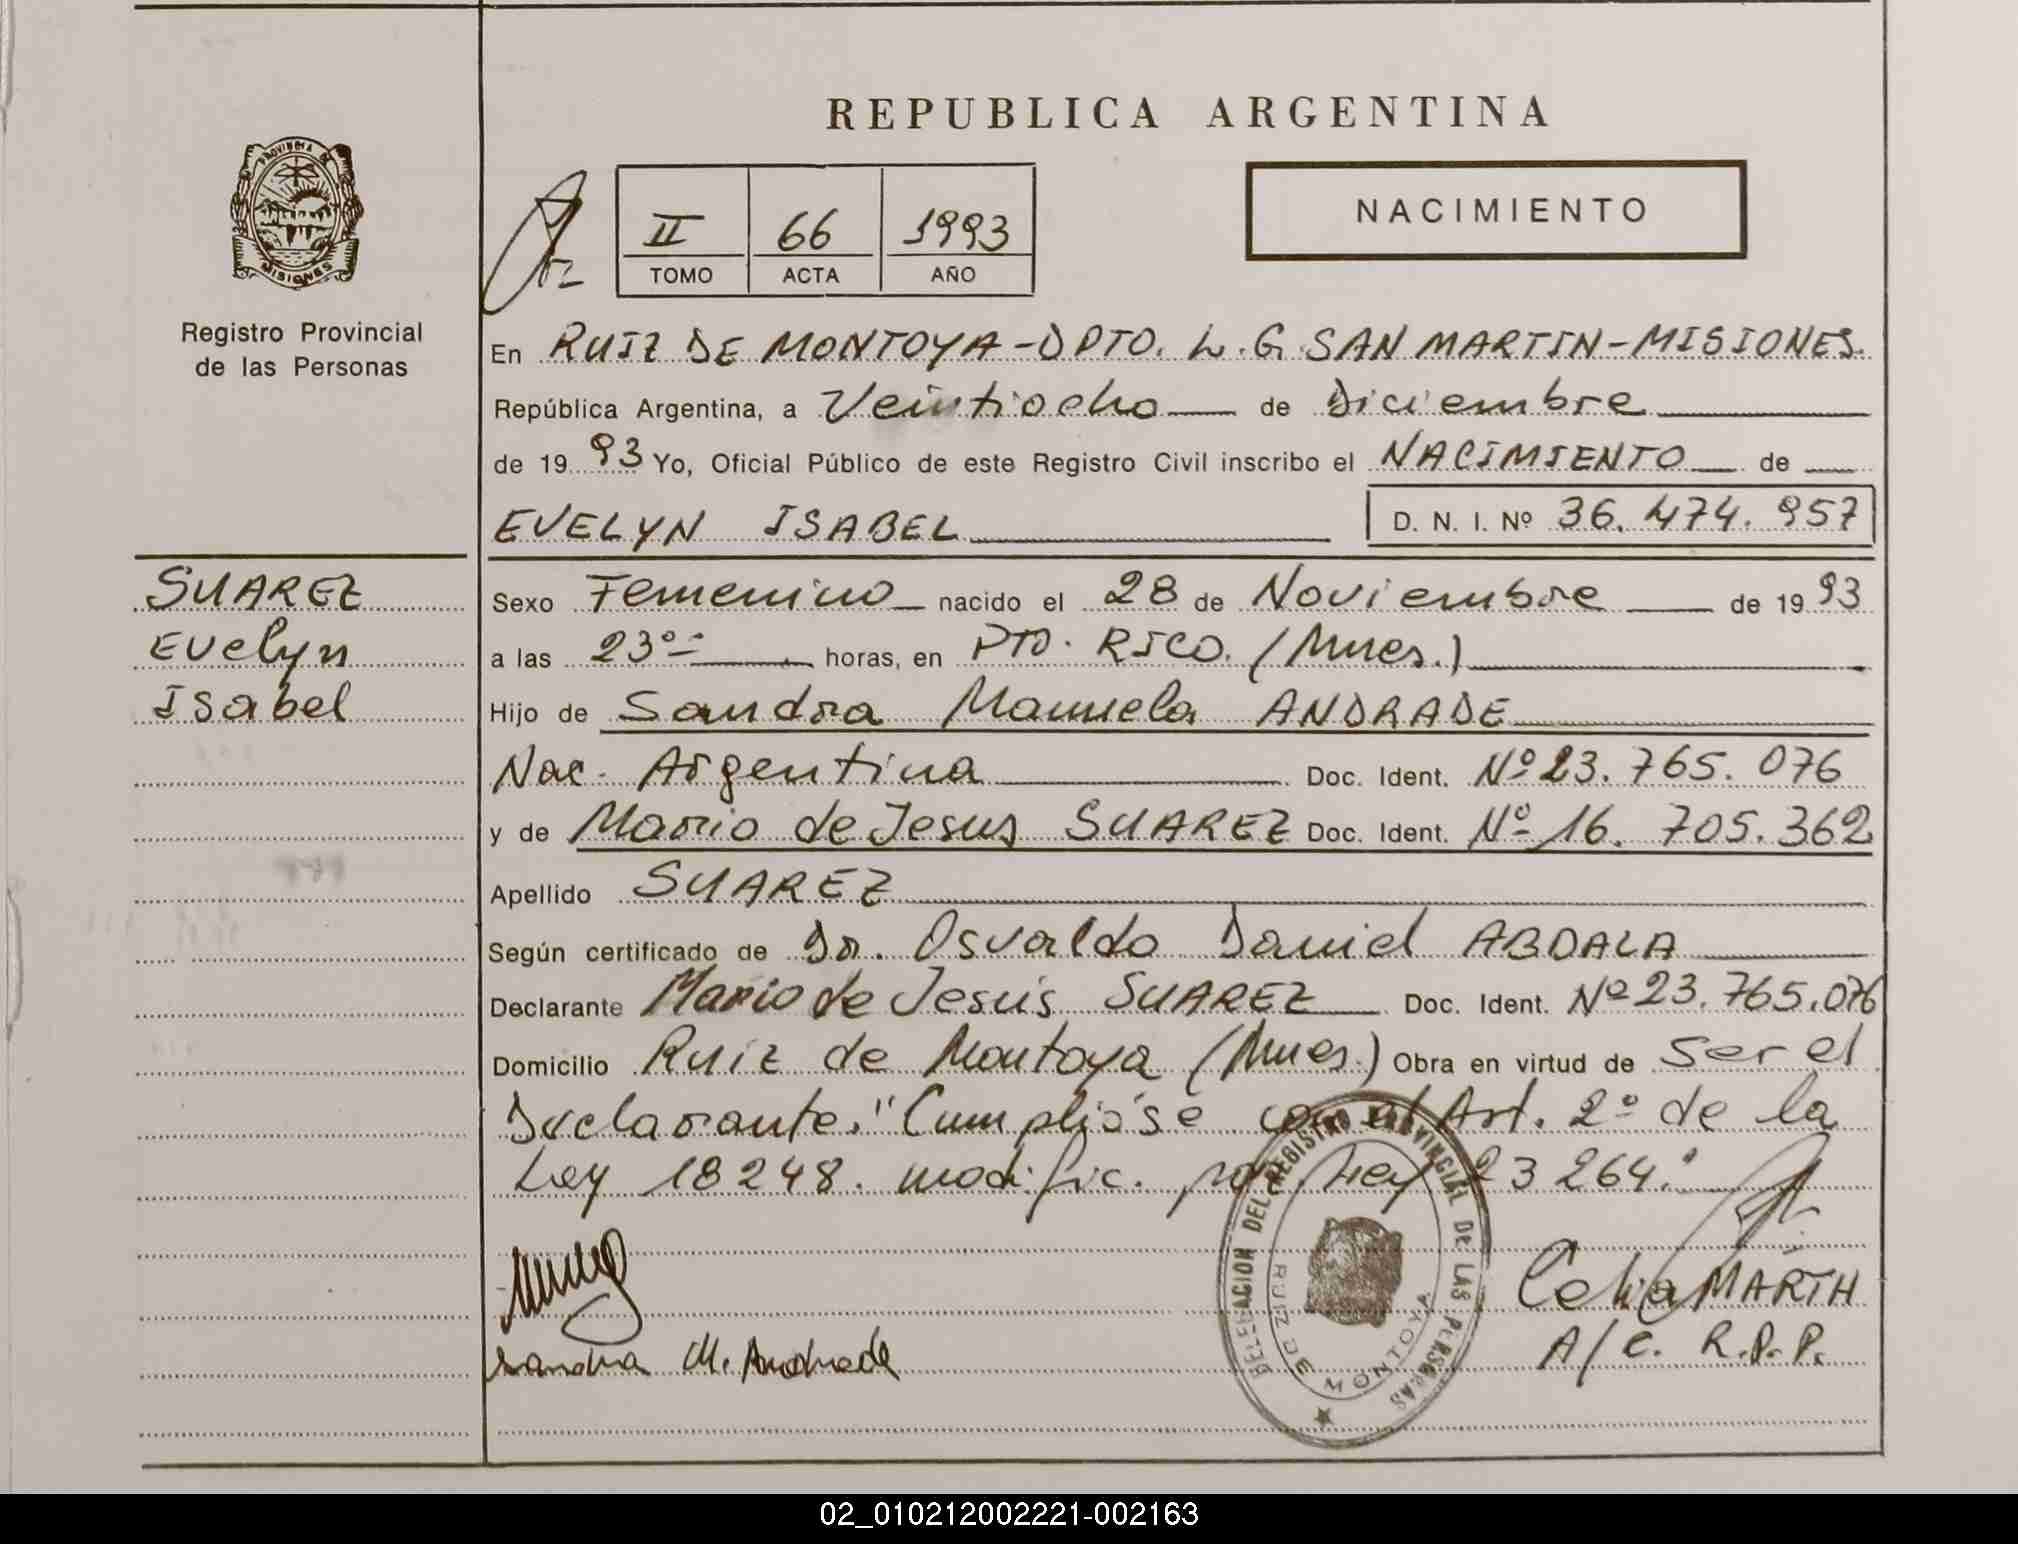 REPUBLICA ARGENTINA
PROVINCIA DE
MISIONES
Registro Provincial
de las Personas
II 66 1993
TOMO ACTA AÑO
NACIMIENTO
En RUIZ DE MONTOYA - DPTO. L.G. SAN MARTIN - MISIONES.
República Argentina, a Veintiocho de Diciembre
de 1993 Yo, Oficial Público de este Registro Civil inscribo el NACIMIENTO de
EVELYN ISABEL D. N. I. Nº 36.474.957
SUAREZ
Evelyn
Isabel
Sexo Femenino nacido el 28 de Noviembre de 1993
a las 23º= horas, en PTO. RICO. (Mnes.)
Hijo de Sandra Manuela ANDRADE
Nac. Argentina Doc. Ident. Nº 23.765.076
y de Mario de Jesus SUAREZ Doc. Ident. Nº 16.705.362
Apellido SUAREZ
Según certificado de Dr. Osvaldo Daniel ABDALA
Declarante Mario de Jesús SUAREZ Doc. Ident. Nº 23.765.076
Domicilio Ruiz de Montoya (Mnes.) Obra en virtud de Ser el
Declarante. "Cumplióse con el Art. 2º de la
Ley 18248. modific. por Ley 23264."
DELEGACION DEL REGISTRO PROVINCIAL DE LAS PERSONAS
RUIZ DE MONTOYA
Celia MARTH
A/C. R.P.P.
Sandra M. Andrade
02_010212002221-002163